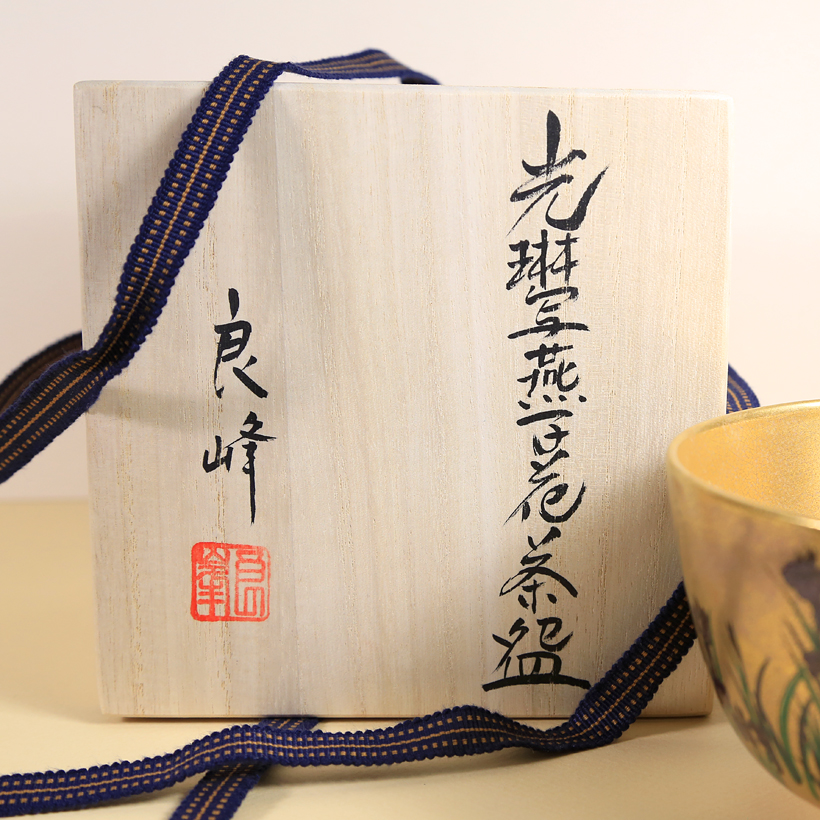 光琳写燕子花茶盌
良峰
良峯